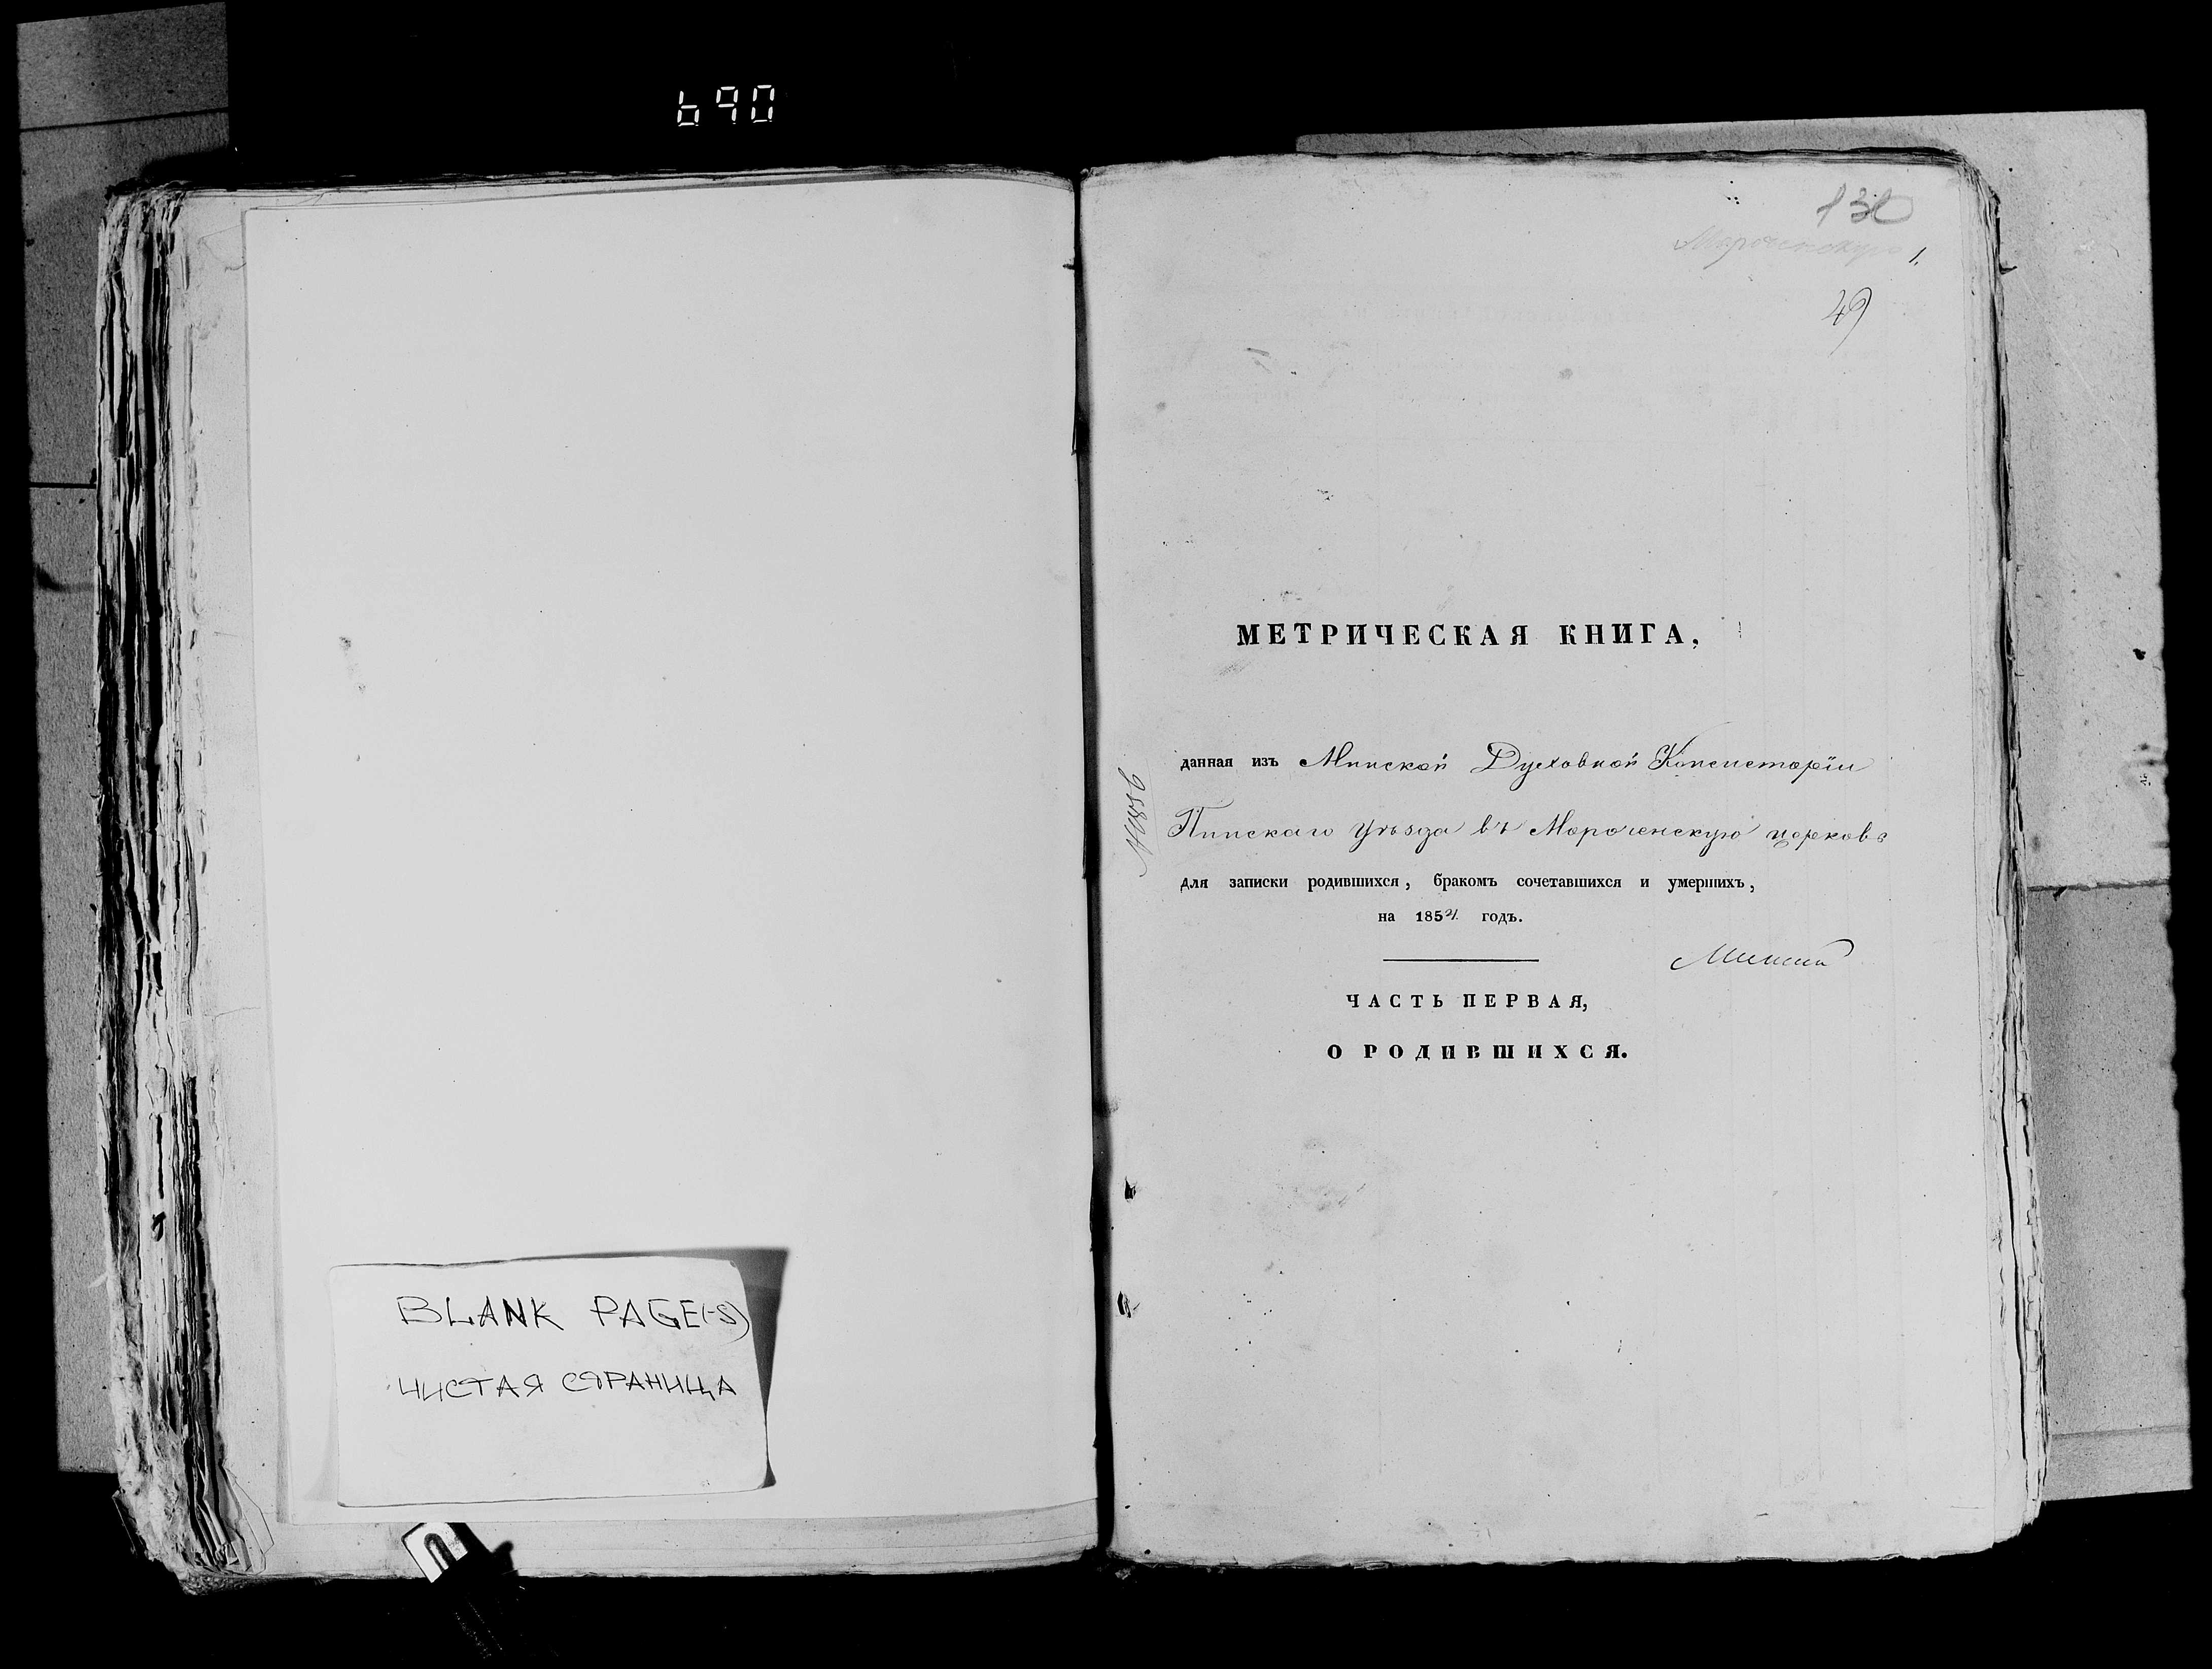 690
130
Мороченскую
1.
49
МЕТРИЧЕСКАЯ КНИГА,
данная изъ Минской Духовной Консисторіи
Пинскаго уѣзда въ Мороченскую церковь
для записки родившихся, бракомъ сочетавшихся и умершихъ,
на 1854 годъ.
ЧАСТЬ ПЕРВАЯ,
О РОДИВШИХСЯ.
BLANK PAGE(-S)
ЧИСТАЯ СТРАНИЦА